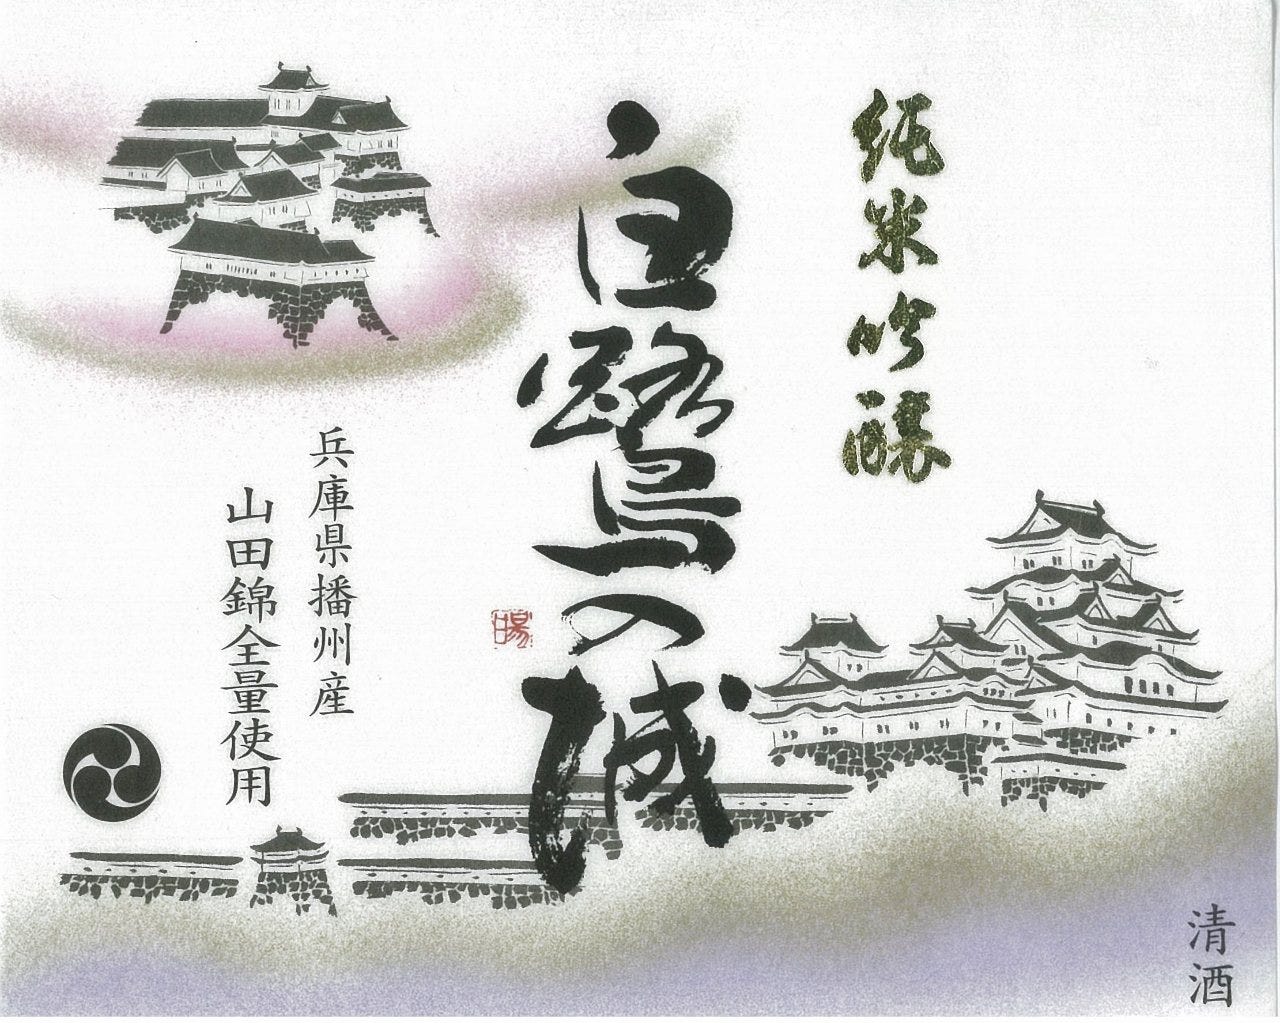 純米吟醸
白鷺の城
兵庫県播州産
山田錦全量使用
清酒